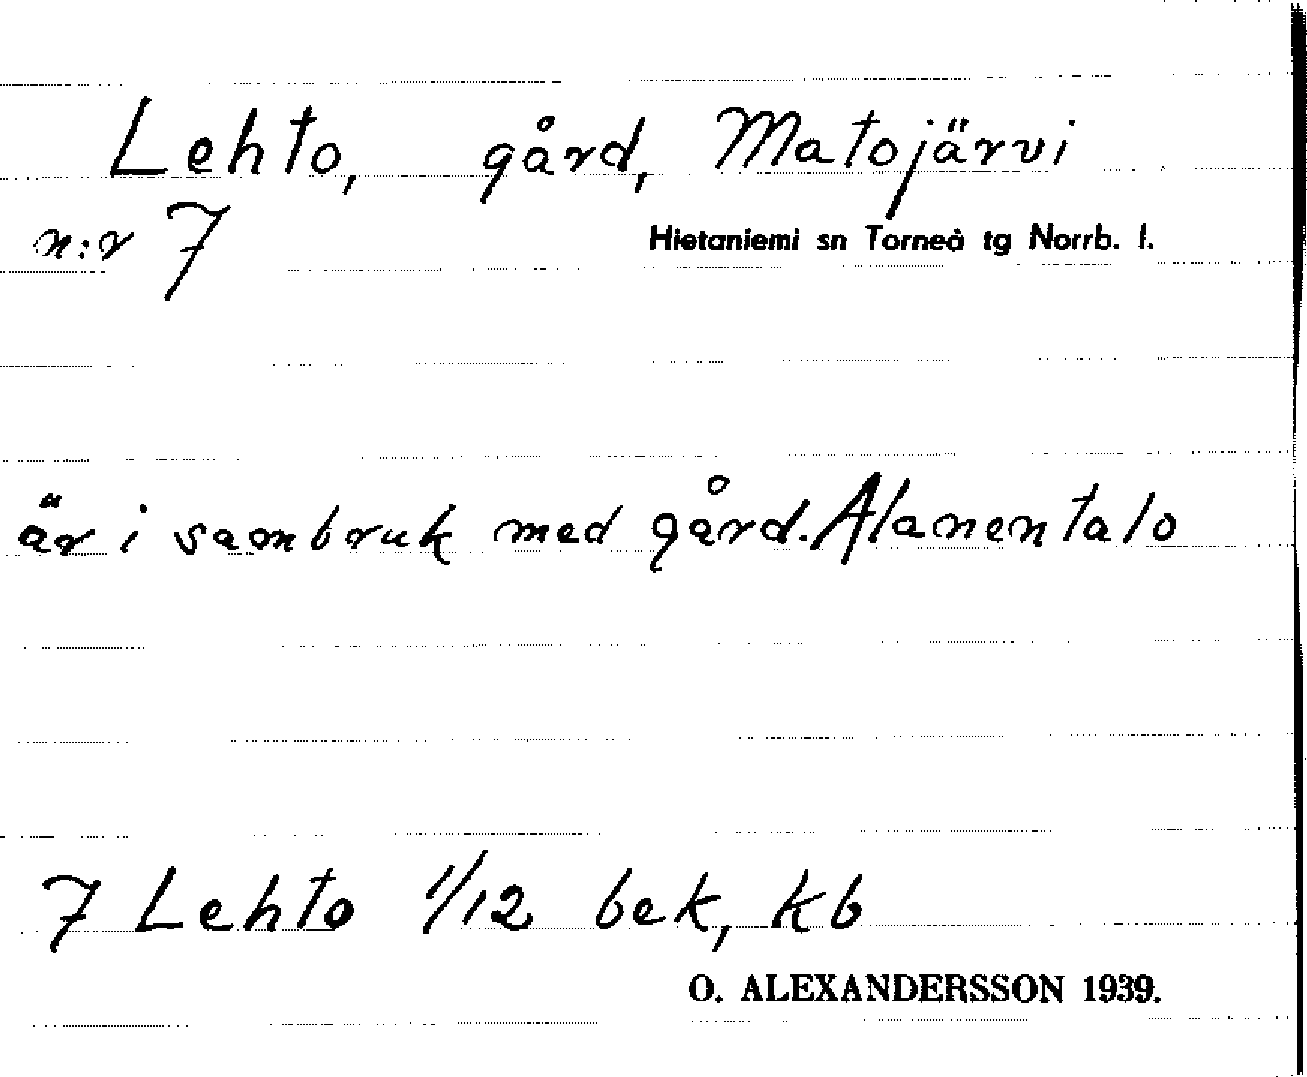 Lehto, gård, Matojärvi
n:r 7
Hietaniemi sn Torneå tg Norrb. l.
är i sambruk med gård. Alanentalo
7 Lehto 1/12 bek, kb
O. ALEXANDERSSON 1939.